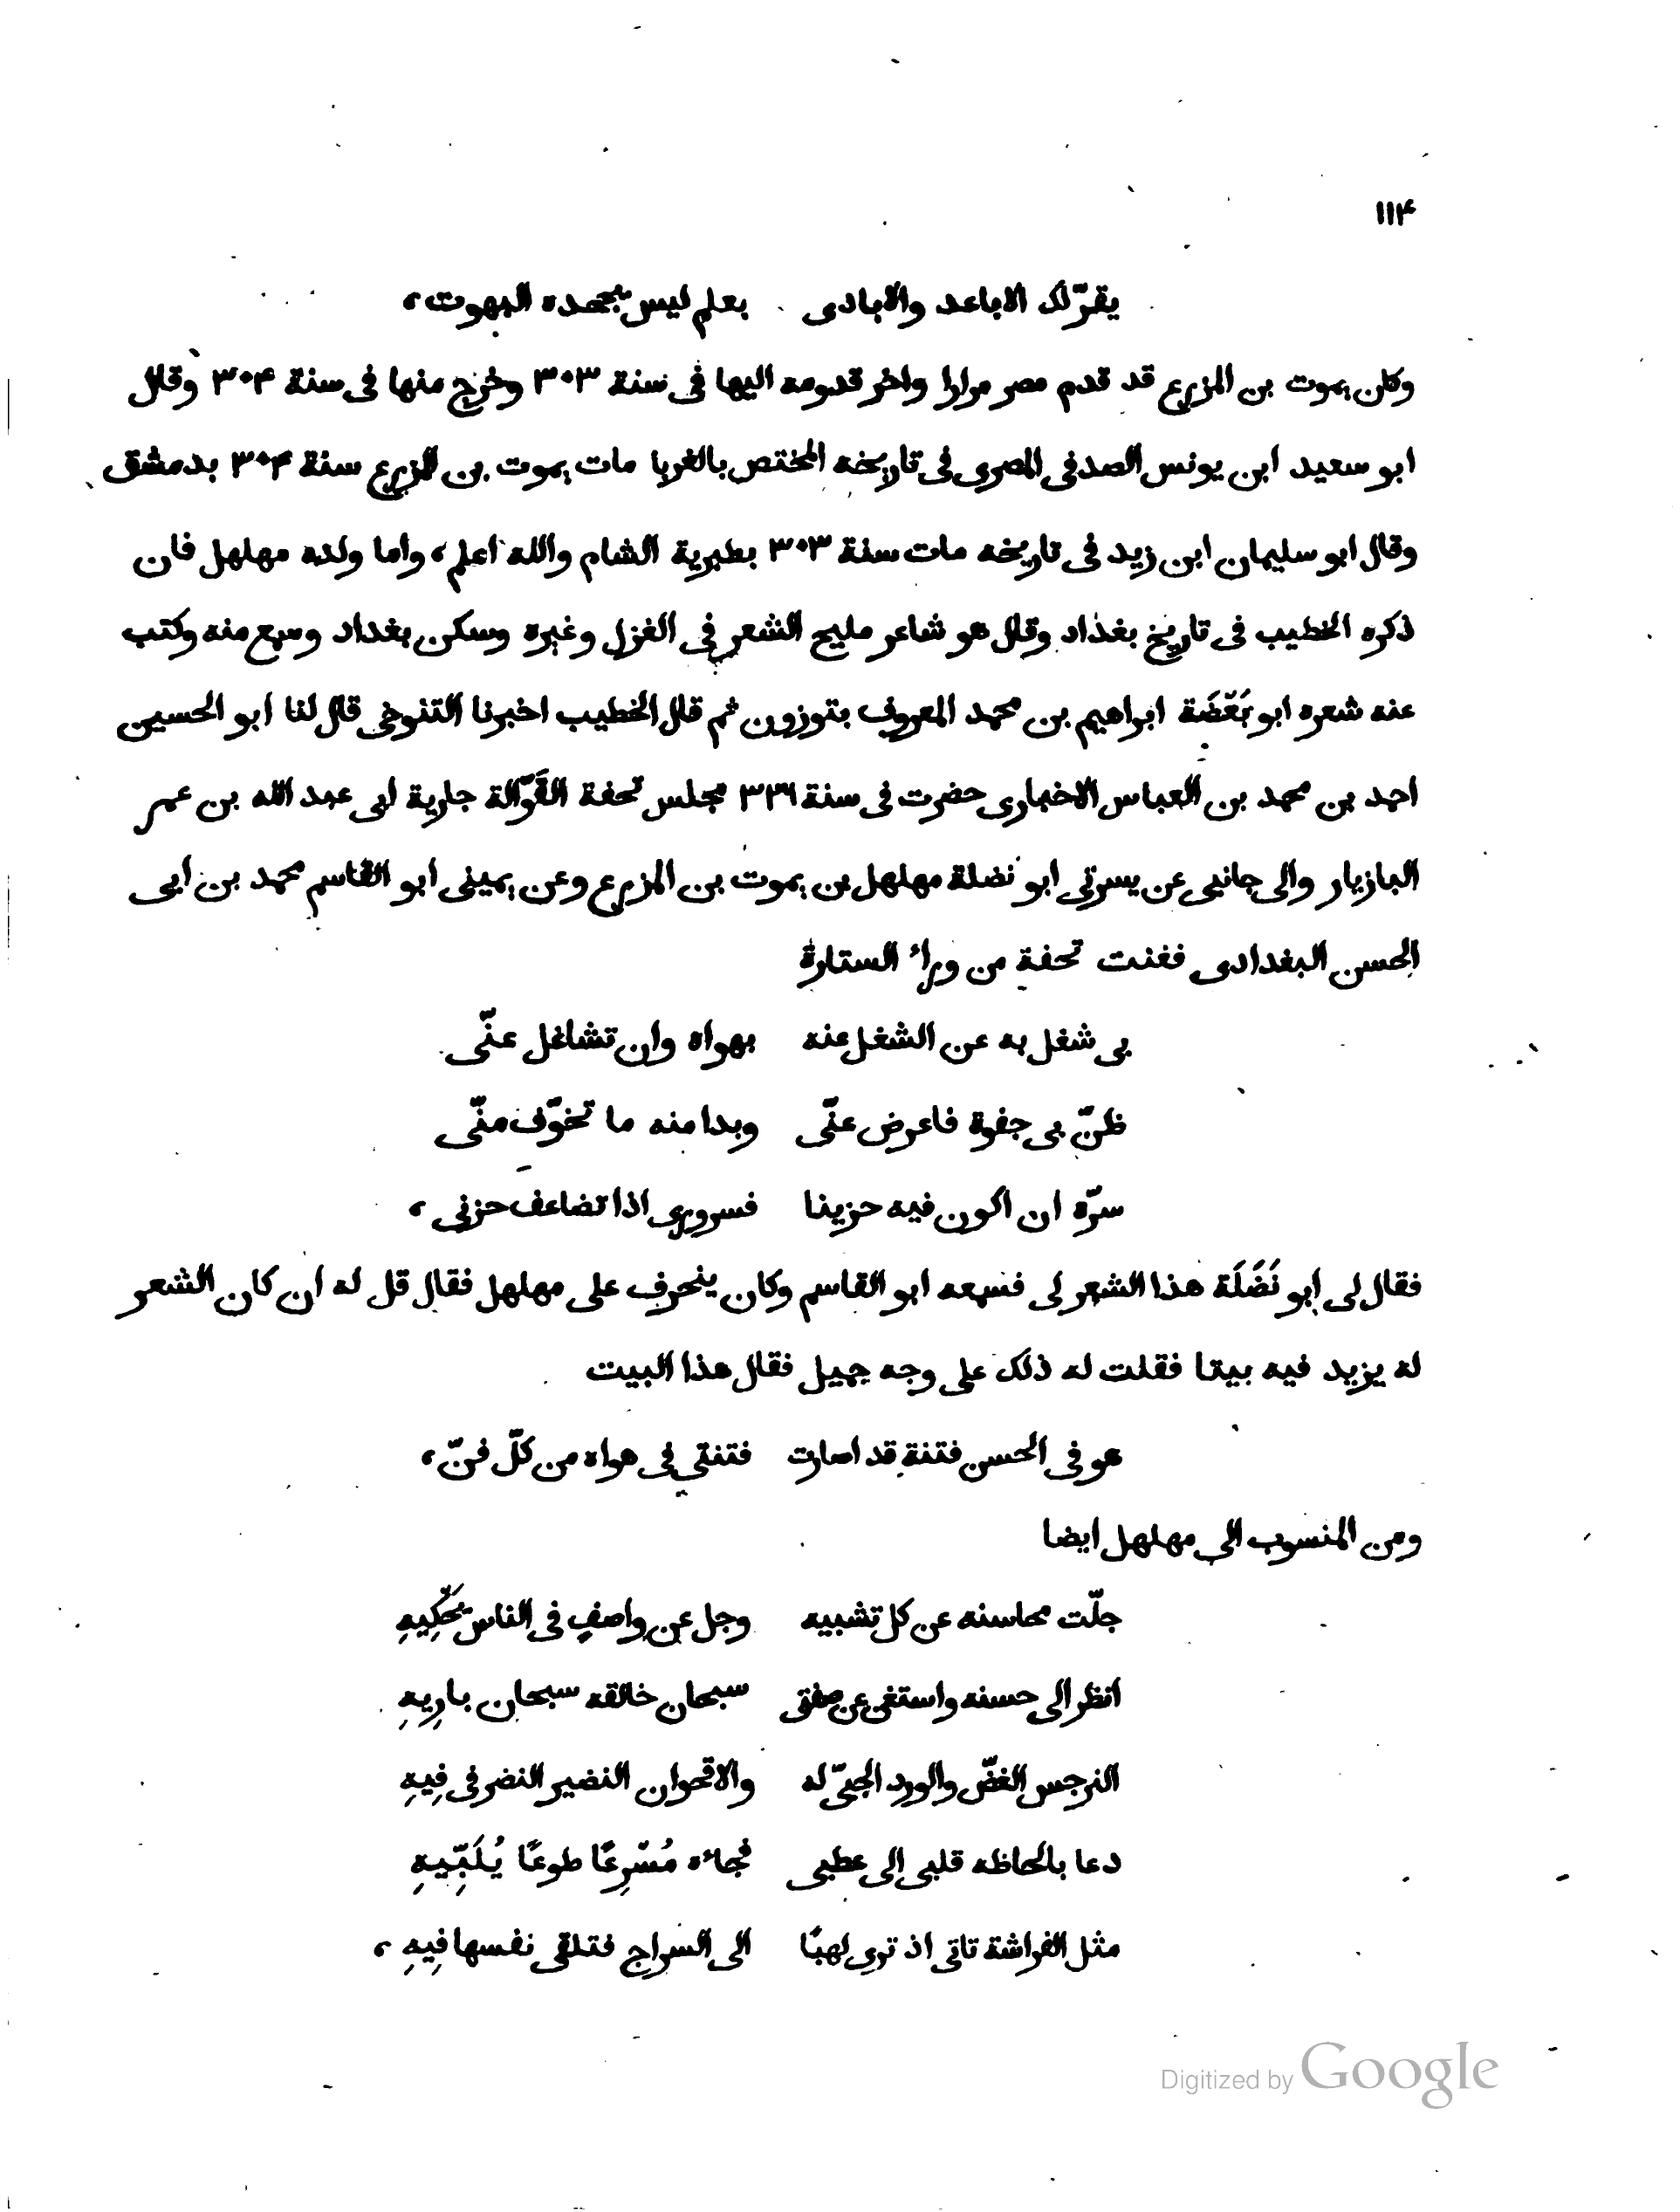 ١١٤
يقرّ لك الاباعد والابادى بعلم ليس يجحده البهوت،
وكان يموت بن المزرع قد قدم مصر مرارا واخر قدومه اليها فى سنة ٣٠٣ وخرج منها فى سنة ٣٠٤ وقال
ابو سعيد ابن يونس الصدفى المصرى فى تاريخه المختص بالغربا مات يموت بن المزرع سنة ٣٠٤ بدمشق
وقال ابو سليمان ابن زيد فى تاريخه مات سنة ٣٠٣ بطبرية الشام والله اعلم، واما ولده مهلهل فان
ذكره الخطيب فى تاريخ بغداد وقال هو شاعر مليح الشعر فى الغزل وغيره وسكن بغداد وسمع منه وكتب
عنه شعره ابو ابراهيم بن محمد المعروف بتوزون ثم قال الخطيب اخبرنا التنوخى قال لنا ابو الحسين
احمد بن محمد بن العباس الاخبارى حضرت فى سنة ٣٣٦ مجلس تحفة القَوّالة جارية ابى عبد الله بن عمر
البازيار والى جانبى عن يسرتى ابو نضلة مهلهل بن يموت بن المزرع وعن يمينى ابو القاسم محمد بن ابى
الحسن البغدادى فغنت تحفة من وراء الستارة
بى شغل به عن الشغل عنه بهواه وان تشاغل عنّى
ظنّ بى جفوة فاعرض عنّى وبدا منه ما تخوّف منّى
سرّه ان اكون فيه حزينا فسرورى اذا تضاعف حزنى،
فقال لى ابو نَضَلَة هذا الشعر لى فسمعه ابو القاسم وكان ينحرف على مهلهل فقال قل له ان كان الشعر
له يزيد فيه بيتا فقلت له ذلك على وجه جميل فقال هذا البيت
هو فى الحسن فتنة قد اصارت فتنتى فى هواه من كلّ فنّ،
ومن المنسوب الى مهلهل ايضا
جلّت محاسنه عن كل تشبيه وجل عن واصفٍ فى الناس يَحْكِيهِ
انظر الى حسنه واستغن عن صفتى سبحان خالقه سبحان بارِيهِ
النرجس الغضّ والورد الجنىّ له والاقحوان النضير النضر فى فِيهِ
دعا بالحاظه قلبى الى عطبى فجاءه مُسْرِعًا طوعًا يُلَبِّيهِ
مثل الفراشة تاتى اذ ترى لهبًا الى السراج فتلقى نفسها فِيهِ،
Digitized by Google